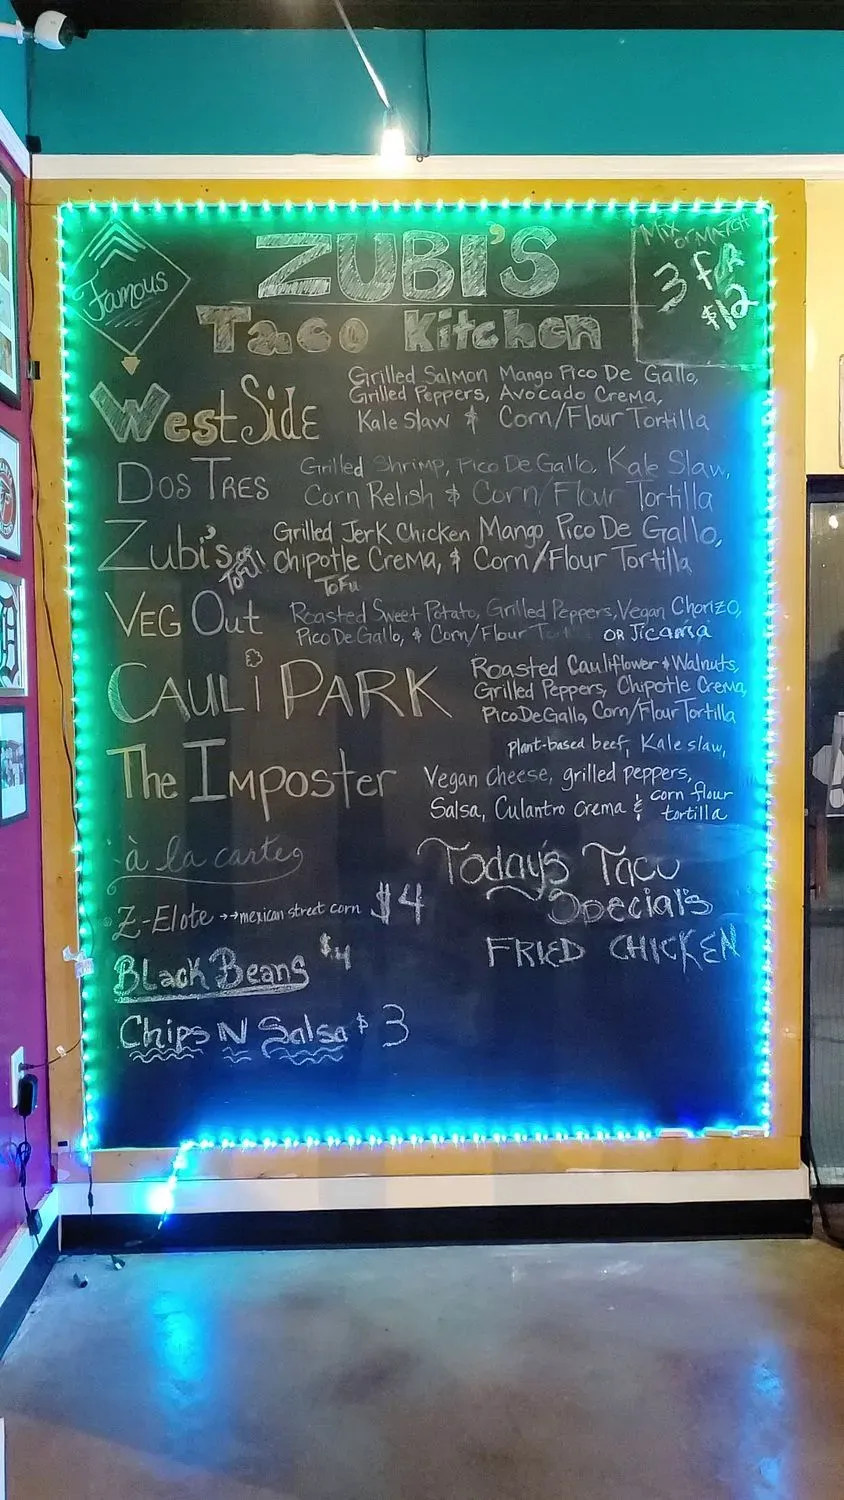 Famous
ZUBI'S
Taco Kitchen
MIX OR MATCH
3 FOR
$12
West Side
Grilled Salmon Mango Pico De Gallo,
Grilled Peppers, Avocado Crema,
Kale Slaw & Corn/Flour Tortilla
Dos Tres
Grilled Shrimp, Pico De Gallo, Kale Slaw,
Corn Relish & Corn/Flour Tortilla
Zubi's
or Tofu!
Grilled Jerk Chicken Mango Pico De Gallo,
Chipotle Crema, & Corn/Flour Tortilla
Tofu
Veg Out
Roasted Sweet Potato, Grilled Peppers, Vegan Chorizo,
Pico De Gallo, & Corn/Flour Tort or Jicama
Cauli Park
Roasted Cauliflower & Walnuts,
Grilled Peppers, Chipotle Crema,
Pico De Gallo, Corn/Flour Tortilla
The Imposter
plant-based beef, Kale slaw,
Vegan cheese, grilled peppers,
Salsa, Culantro Crema & corn flour
tortilla
à la carte
Z-Elote →→mexican street corn $4
Black Beans $4
Chips N Salsa $3
Today's Taco
Special's
FRIED CHICKEN